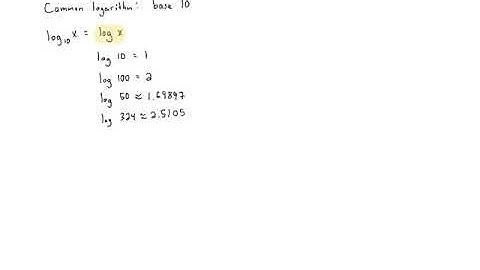 Common logarithm: base 10
log₁₀ x = log x
log 10 = 1
log 100 = 2
log 50 ≈ 1.69897
log 324 ≈ 2.5105